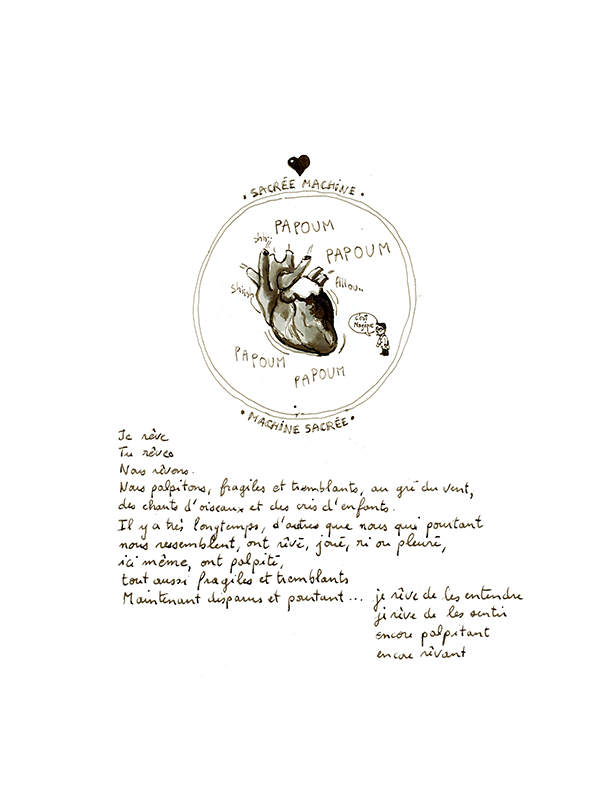 • SACRÉE MACHINE •
PAPOUM
PAPOUM
shhii
Shissh
c'est
PAPOUM
PAPOUM
• MACHINE SACRÉE •
Je rêve
Tu rêves
Nous rêvons.
Nous palpitons, fragiles et tremblants, au gré du vent,
des chants d'oiseaux et des cris d'enfants.
Il y a très longtemps, d'autres que nous qui pourtant
nous ressemblent, ont rêvé, joué, ri ou pleuré,
ici même, ont palpité,
tout aussi fragiles et tremblants
Maintenant disparus et pourtant ... je rêve de les entendre
je rêve de les sentir
encore palpitant
encore rêvant